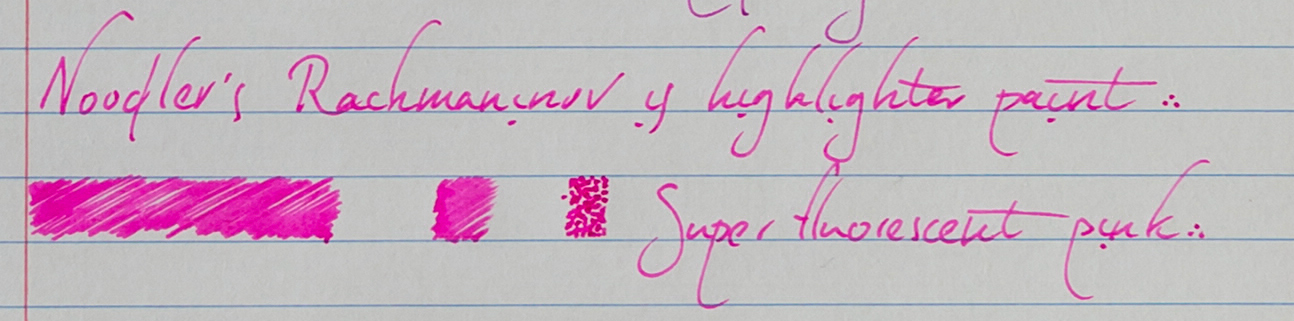 Noodler's Rachmaninov is highlighter paint ∴
Super fluorescent pink ∴